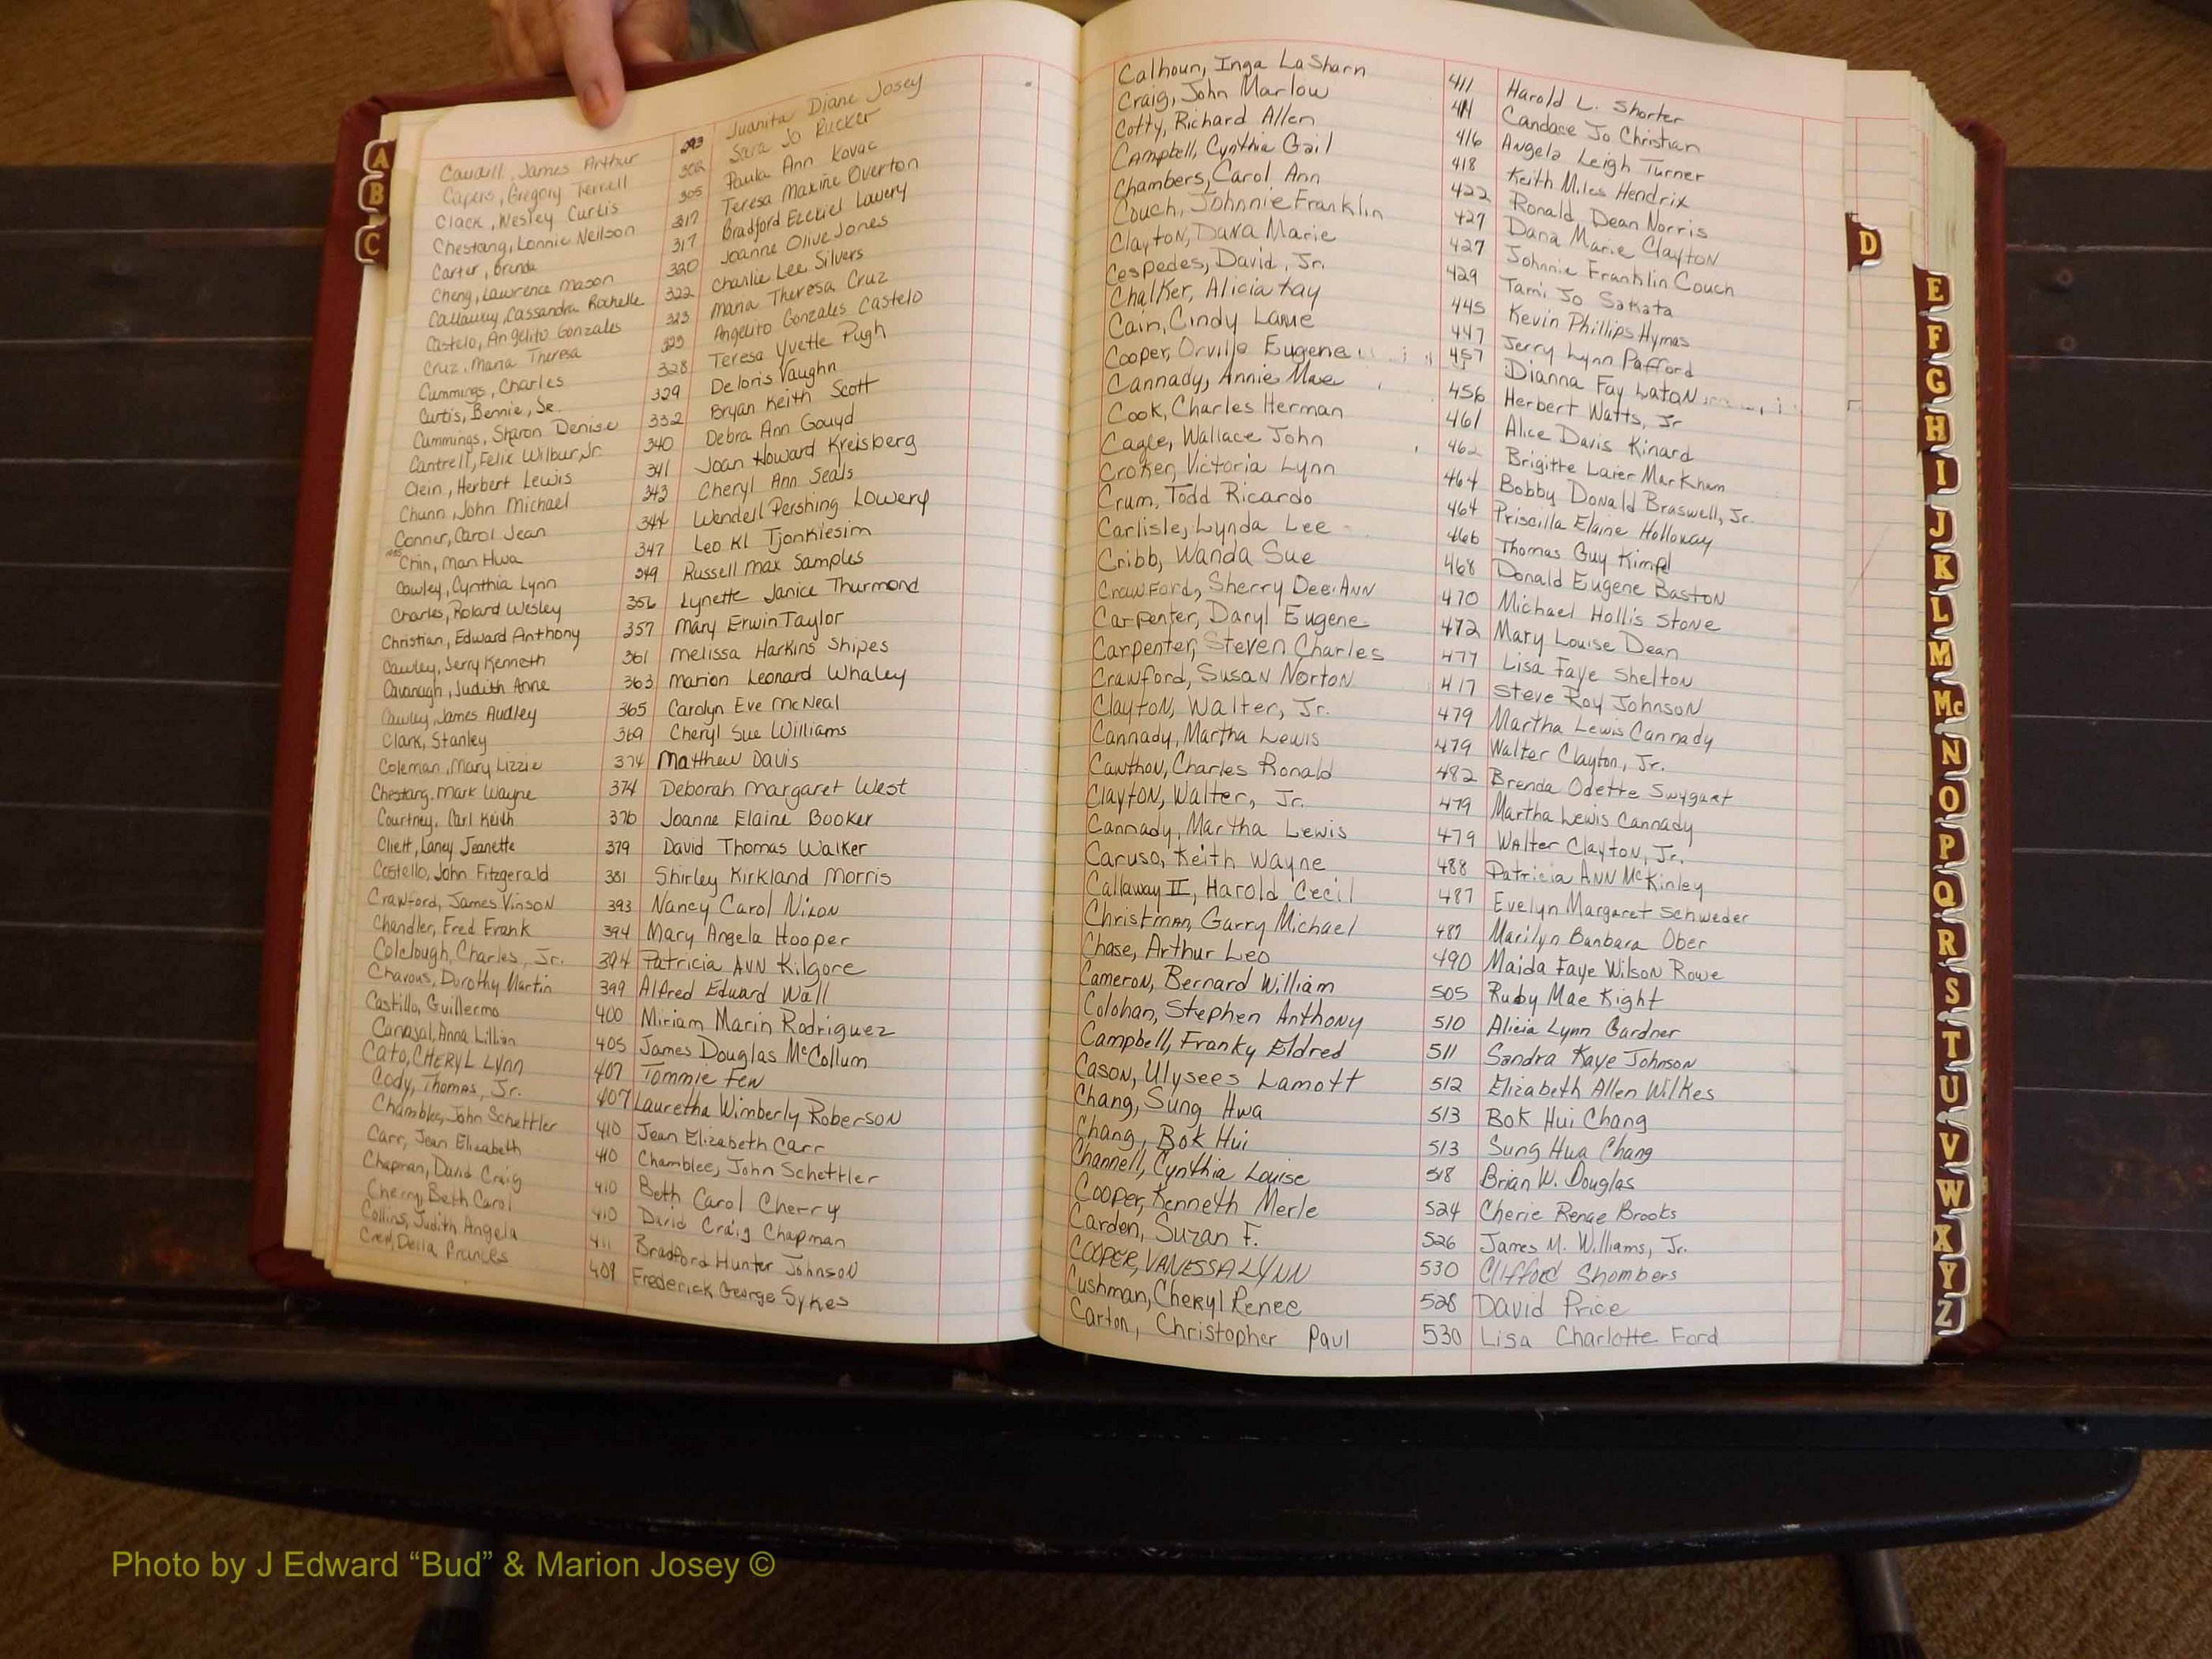 A
B
C
Caudill, James Arthur 293 Juanita Diane Josey
Capers, Gregory Terrell 302 Sara Jo Rucker
Clack, Wesley Curtis 305 Paula Ann Kovac
Chestang, Lonnie Neilson 317 Teresa Maxine Overton
Carter, Brenda 317 Bradford Ezekiel Lowery
Cheng, Lawrence Mason 320 Joanne Olive Jones
Callaway, Cassandra Rochelle 322 Charlie Lee Silvers
Castelo, Angelito Gonzales 323 Maria Theresa Cruz
Cruz, Maria Theresa 323 Angelito Gonzales Castelo
Cummings, Charles 328 Teresa Yvette Pugh
Curtis, Bennie, Sr. 329 Deloris Vaughn
Cummings, Sharon Denise 332 Bryan Keith Scott
Cantrell, Felix Wilbur, Jr. 340 Debra Ann Gouyd
Clein, Herbert Lewis 341 Joan Howard Kreisberg
Chunn, John Michael 343 Cheryl Ann Seals
Conner, Carol Jean 344 Wendell Pershing Lowery
Chin, Man Hwa 347 Leo Kl Tjonkiesim
Cawley, Cynthia Lynn 349 Russell Max Samples
Charles, Roland Wesley 356 Lynette Janice Thurmond
Christian, Edward Anthony 357 Mary Erwin Taylor
Cawley, Jerry Kenneth 361 Melissa Harkins Shipes
Cavanagh, Judith Anne 363 Marion Leonard Whaley
Cawley, James Audley 365 Carolyn Eve McNeal
Clark, Stanley 369 Cheryl Sue Williams
Coleman, Mary Lizzie 374 Matthew Davis
Chestang, Mark Wayne 374 Deborah Margaret West
Courtney, Carl Keith 376 Joanne Elaine Booker
Cliett, Laney Jeanette 379 David Thomas Walker
Costello, John Fitzgerald 381 Shirley Kirkland Morris
Crawford, James Vinson 393 Nancy Carol Nixon
Chandler, Fred Frank 394 Mary Angela Hooper
Colclough, Charles, Jr. 394 Patricia Ann Kilgore
Charous, Dorothy Martin 399 Alfred Edward Wall
Castillo, Guillermo 400 Miriam Marin Rodriguez
Canagal, Anna Lillian 405 James Douglas McCollum
Cato, CHERYL LYNN 407 Tommie Few
Cody, Thomas, Jr. 407 Lauretha Wimberly Roberson
Chamblee, John Schettler 410 Jean Elizabeth Carr
Carr, Jean Elizabeth 410 Chamblee, John Schettler
Chapman, David Craig 410 Beth Carol Cherry
Cherry, Beth Carol 410 David Craig Chapman
Collins, Judith Angela 411 Bradford Hunter Johnson
Della Frances 409 Frederick George Sykes
Calhoun, Inga LaSharn 411 Harold L. Shorter
Craig, John Marlow 411 Candace Jo Christian
Cotty, Richard Allen 416 Angela Leigh Turner
Campbell, Cynthia Gail 418 Keith Miles Hendrix
Chambers, Carol Ann 422 Ronald Dean Norris
Couch, Johnnie Franklin 427 Dana Marie Clayton
Clayton, Dana Marie 427 Johnnie Franklin Couch
Cespedes, David, Jr. 429 Tami Jo Sakata
Chalker, Alicia Kay 445 Kevin Phillips Hymas
Cain, Cindy Larue 447 Jerry Lynn Pafford
Cooper, Orville Eugene 457 Dianna Fay Laton
Cannady, Annie Mae 456 Herbert Watts, Jr
Cook, Charles Herman 461 Alice Davis Kinard
Cagle, Wallace John 462 Brigitte Laier Markham
Croker, Victoria Lynn 464 Bobby Donald Braswell, Jr.
Crum, Todd Ricardo 464 Priscilla Elaine Holloway
Carlisle, Lynda Lee 466 Thomas Guy Kimpl
Cribb, Wanda Sue 468 Donald Eugene Baston
Crawford, Sherry Dee Ann 470 Michael Hollis Stone
Carpenter, Daryl Eugene 472 Mary Louise Dean
Carpenter, Steven Charles 477 Lisa Faye Shelton
Crawford, Susan Norton 417 Steve Roy Johnson
Clayton, Walter, Jr. 479 Martha Lewis Cannady
Cannady, Martha Lewis 479 Walter Clayton, Jr.
Cawthon, Charles Ronald 482 Brenda Odette Swygart
Clayton, Walter, Jr. 479 Martha Lewis Cannady
Cannady, Martha Lewis 479 Walter Clayton, Jr.
Caruso, Keith Wayne 488 Patricia Ann McKinley
Callaway II, Harold Cecil 487 Evelyn Margaret Schweder
Christman, Garry Michael 487 Marilyn Barbara Ober
Chase, Arthur Leo 490 Maida Faye Wilson Rowe
Cameron, Bernard William 505 Ruby Mae Kight
Colohan, Stephen Anthony 510 Alicia Lynn Gardner
Campbell, Franky Eldred 511 Sandra Kaye Johnson
Cason, Ulysees Lamott 512 Elizabeth Allen Wilkes
Chang, Sung Hwa 513 Bok Hui Chang
Chang, Bok Hui 513 Sung Hwa Chang
Channell, Cynthia Louise 518 Brian W. Douglas
Cooper, Kenneth Merle 524 Cherie Renae Brooks
Carden, Suzan F. 526 James M. Williams, Jr.
COOPER, VANESSA LYNN 530 Clifford Shombers
Cushman, Cheryl Renee 528 David Price
Carton, Christopher Paul 530 Lisa Charlotte Ford
D
E
F
G
H
I
J
K
L
M
Mc
N
O
P
Q
R
S
T
U
V
W
X
Y
Z
Photo by J Edward “Bud” & Marion Josey ©